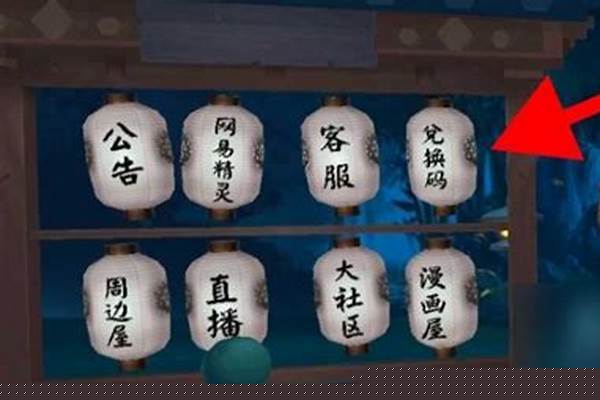 公告
网易精灵
客服
兑换码
周边屋
直播
大社区
漫画屋